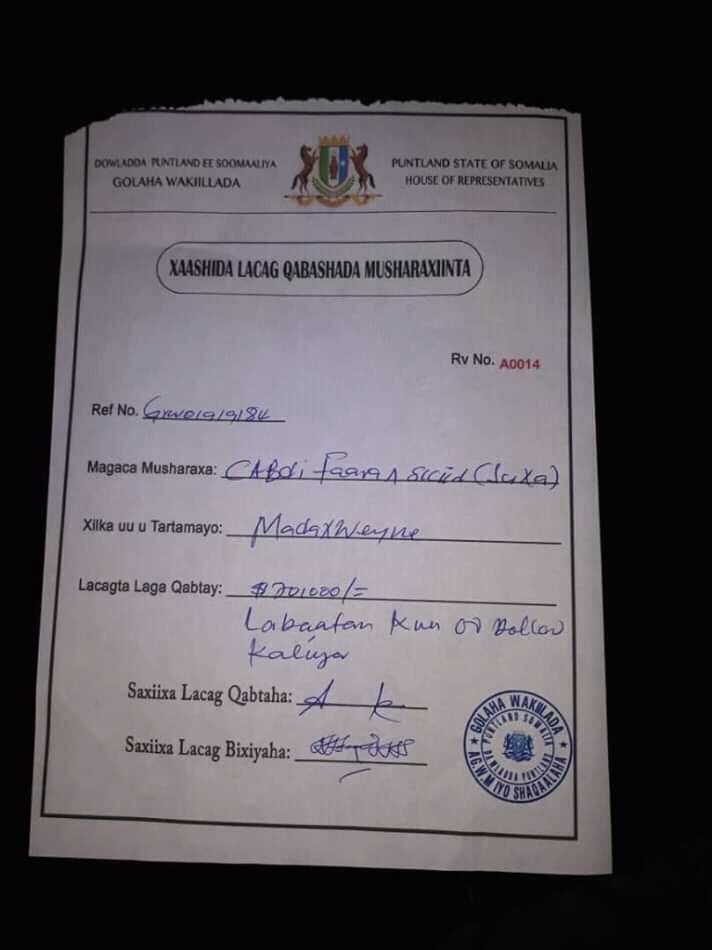 DOWLADDA PUNTLAND EE SOOMAALIYA
GOLAHA WAKIILLADA
PUNTLAND STATE OF SOMALIA
HOUSE OF REPRESENTATIVES
XAASHIDA LACAG QABASHADA MUSHARAXIINTA
Rv No. A0014
Ref No.
Magaca Musharaxa: CABdi Faarax Siciid (Juxa)
Xilka uu u Tartamayo: MadaxWeyne
Lacagta Laga Qabtay:
Labaatan Kun oo Dollar
Kaliya
Saxiixa Lacag Qabtaha:
Saxiixa Lacag Bixiyaha:
GOLAHA WAKIILADA
PUNTLAND SOMALIA
DAWLADDA PUNTLAND
AG.W.M IYO SHAQAALAHA